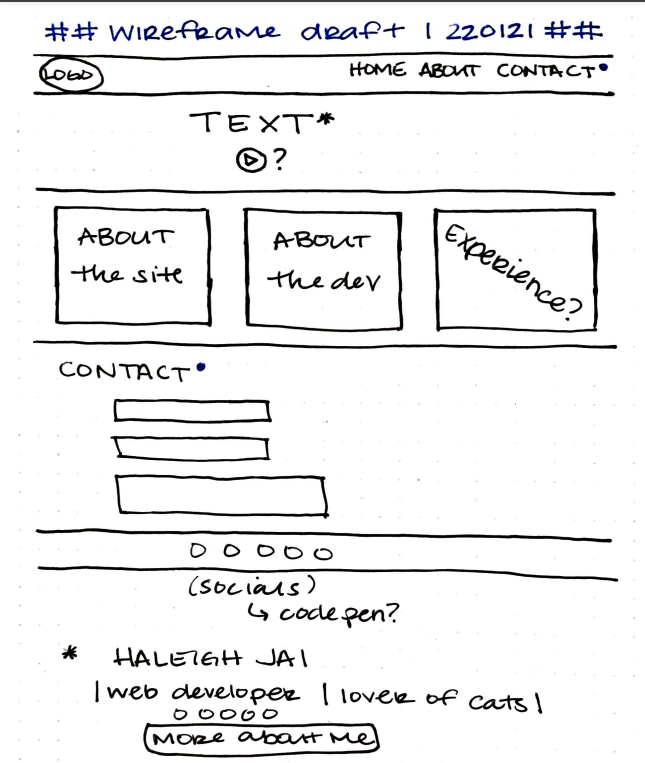 ## WIREFRAME draft | 220121 ##
LOGO HOME ABOUT CONTACT
TEXT*
?
ABOUT
the site
ABOUT
the dev
Experience?
CONTACT
(socials)
↳ codepen?
* HALEIGH JAI
| web developer | lover of cats |
More about Me